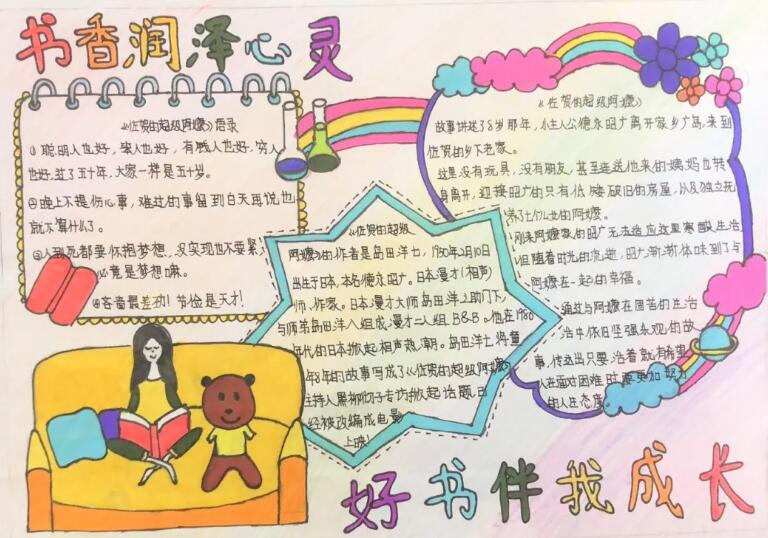 书香润泽心灵
《佐贺的超级阿嬷》语录
①聪明人也好,笨人也好,有钱人也好,穷人
也好,过了五十年,大家一样是五十岁。
②晚上不提伤心事,难过的事留到白天再说也
就不算什么了。
③人到死都要怀抱梦想,没实现也不要紧
毕竟是梦想嘛。
④吝啬最差劲!节俭是天才!
《佐贺的超级
阿嬷》的作者是岛田洋七,1950年2月10日
出生于日本,本名德永昭广。日本漫才(相声)
师,作家。日本漫才大师岛田洋之助门下,
与师弟岛田洋八组成漫才二人组B&B。他在1980
年代的日本掀起相声热潮。岛田洋七将童
年8年的故事写成了《佐贺的超级阿嬷》
主持人黑柳彻子专访掀起话题已
经被改编成电影
上映!
《佐贺的超级阿嬷》
故事讲述了8岁那年,小主人公德永昭广离开家乡广岛,来到
佐贺的乡下老家。
这里没有玩具,没有朋友,甚至连送他来的姨妈也转
身离开,迎接昭广的只有低矮破旧的房屋,以及独立抚
养七个儿女的阿嬷。
刚来阿嬷家的昭广无法适应这里寒酸生活
但随着时光的流逝,昭广渐渐体味到了与
阿嬷在一起的幸福。
通过与阿嬷在困苦的生活
活中依旧坚强乐观的故
事,传达出只要活着就有希望
人在面对困难时要更加努力
的人生态度。
好书伴我成长